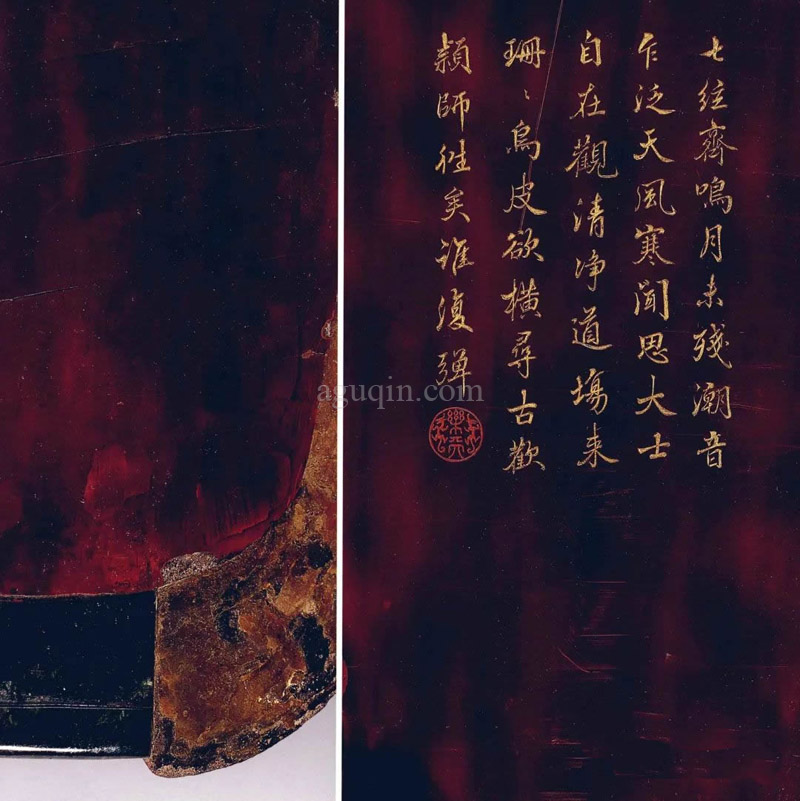 七絃齊鳴月未殘潮音
乍泛天風寒聞思大士
自在觀清浄道塲来
珊〻烏皮欲橫尋古歡
穎師往矣誰復彈
aguqin.com